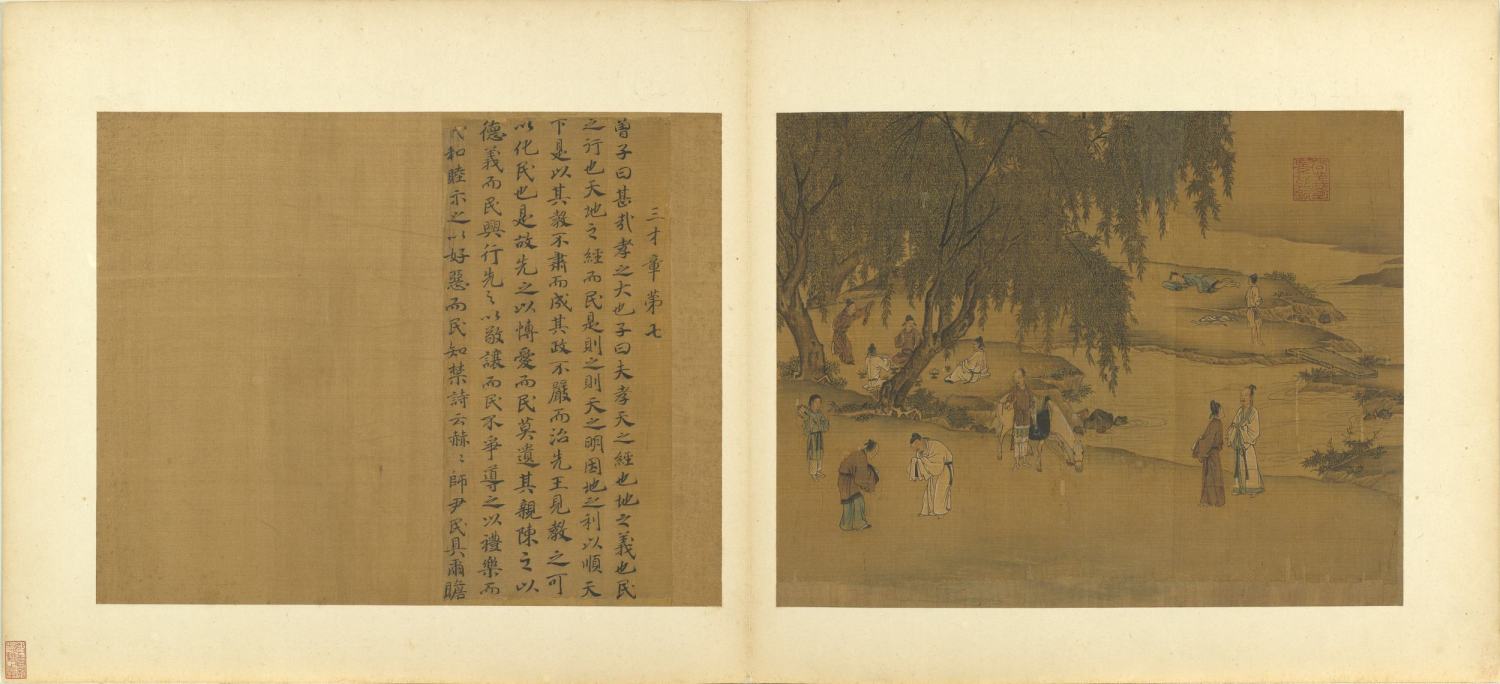 三才章第七
曾子曰甚哉孝之大也子曰夫孝天之經也地之義也民
之行也天地之經而民是則之則天之明因地之利以順天
下是以其教不肅而成其政不嚴而治先王見教之可
以化民也是故先之以博愛而民莫遺其親陳之以
德義而民興行先之以敬讓而民不爭導之以禮樂而
民和睦示之以好惡而民知禁詩云赫〻師尹民具爾瞻